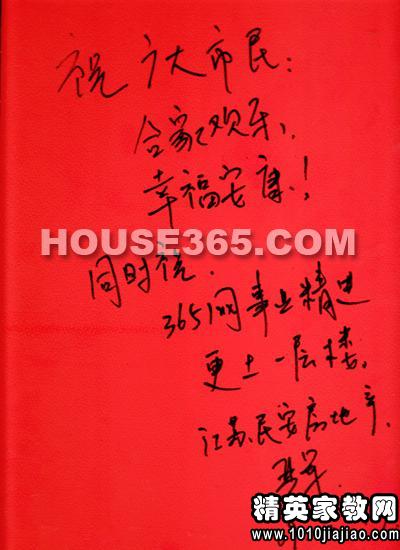 祝广大市民:
合家欢乐、
幸福安康!
HOUSE365.COM
同时祝.
365网事业精进
更上一层楼。
江苏民安房地产.
精英家教网
www.1010jiajiao.com